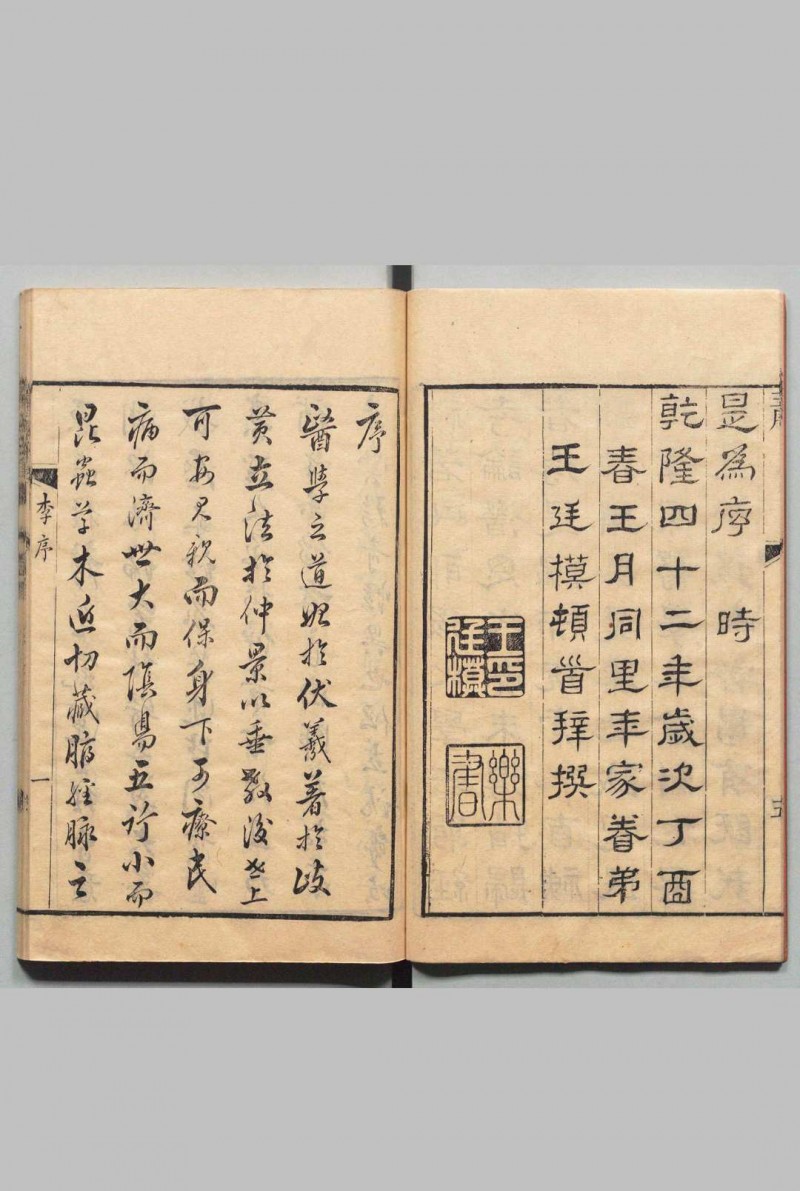 是為序時
乾隆四十二年歲次丁酉
春王月同里年家眷弟
王廷模頓首拜撰
王印廷模
樂書
序
醫學之道始於伏羲著於岐
黃立法於仲景以垂教後世上
可安君親而保身下可療民
病而濟世大而陰陽五行小而
昆蟲草木近切藏腑經脈之
李序
一